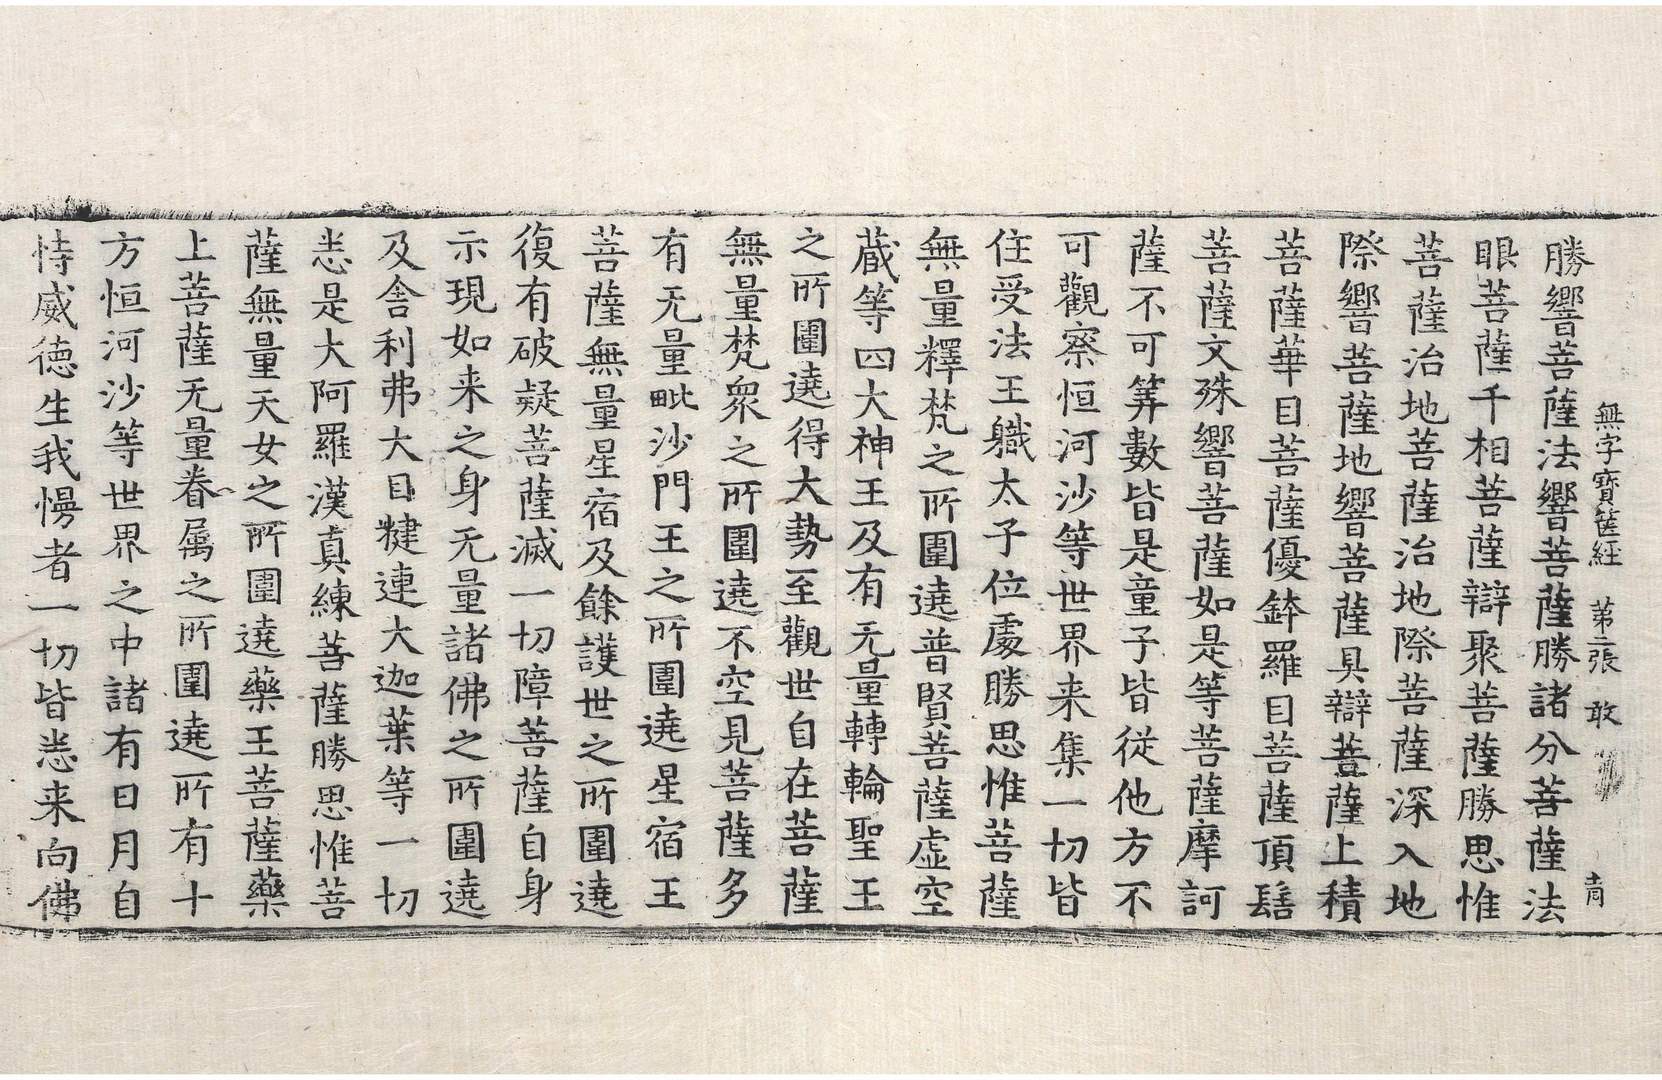 無字寶篋經 第二張 敢
勝響菩薩法響菩薩勝諸分菩薩法
眼菩薩千相菩薩辯聚菩薩勝思惟
菩薩治地菩薩治地際菩薩深入地
際響菩薩地響菩薩具辯菩薩上積
菩薩華目菩薩優鉢羅目菩薩頂髻
菩薩文殊響菩薩如是等菩薩摩訶
薩不可筭數皆是童子皆從他方不
可觀察恒河沙等世界来集一切皆
住受法王軄太子位處勝思惟菩薩
無量釋梵之所圍遶普賢菩薩虛空
蔵等四大神王及有无量轉輪聖王
之所圍遶得大勢至觀世自在菩薩
無量梵衆之所圍遶不空見菩薩多
有无量毗沙門王之所圍遶星宿王
菩薩無量星宿及餘護世之所圍遶
復有破疑菩薩滅一切障菩薩自身
示現如来之身无量諸佛之所圍遶
及舍利弗大目揵連大迦葉等一切
悉是大阿羅漢真練菩薩勝思惟菩
薩無量天女之所圍遶藥王菩薩藥
上菩薩无量眷属之所圍遶所有十
方恒河沙等世界之中諸有日月自
恃威德生我慢者一切皆悉来向佛